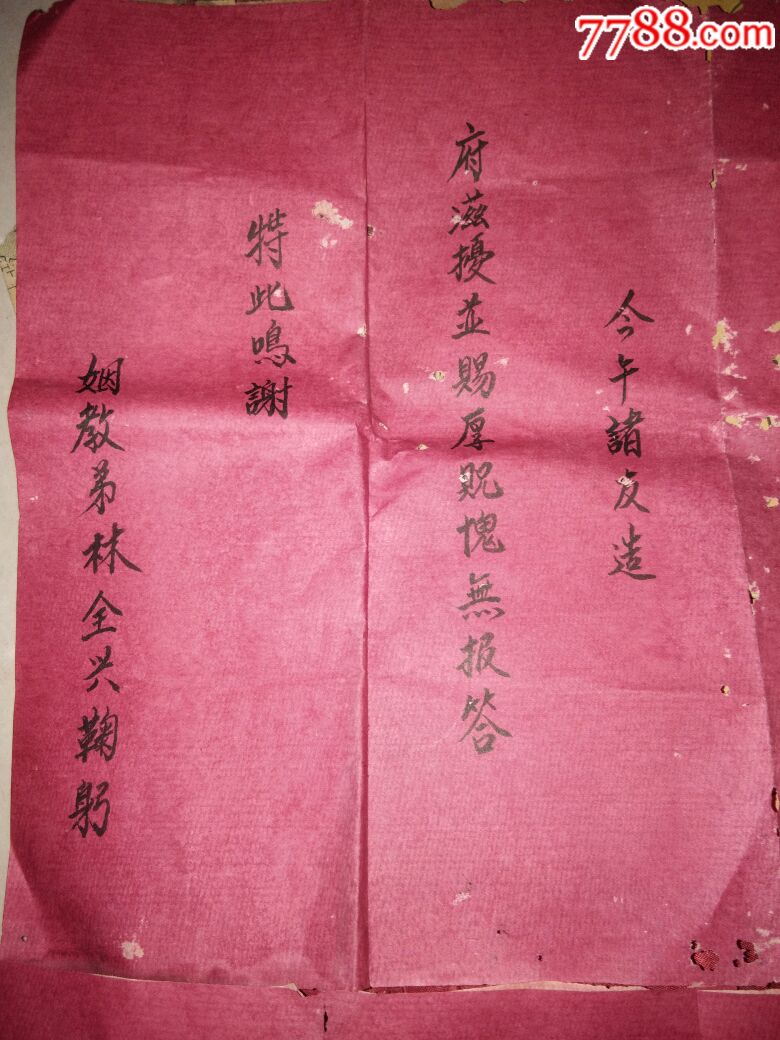 7788.com
今午諸友造
府滋擾並賜厚貺愧無报答
特此鳴謝
姻教弟林全兴鞠躬